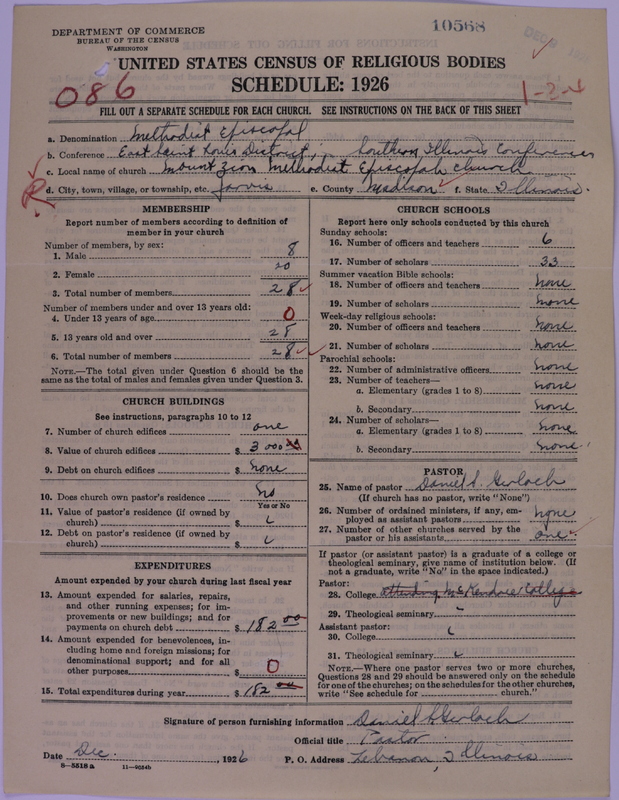 DEPARTMENT OF COMMERCE
BUREAU OF THE CENSUS
WASHINGTON
10568
DEC 9
UNITED STATES CENSUS OF RELIGIOUS BODIES
SCHEDULE: 1926
086
1-2-4
FILL OUT A SEPARATE SCHEDULE FOR EACH CHURCH. SEE INSTRUCTIONS ON THE BACK OF THIS SHEET
a. Denomination Methodist Episcopal
b. Conference East Saint Louis District, Southern Illinois Conference
c. Local name of church Mount Zion Methodist Episcopal Church
d. City, town, village, or township, etc. Jarvis e. County Madison f. State Illinois.
MEMBERSHIP
Report number of members according to definition of
member in your church
Number of members, by sex:
1. Male 8
2. Female 20
3. Total number of members 28
Number of members under and over 13 years old:
4. Under 13 years of age 0
5. 13 years old and over 28
6. Total number of members 28
NOTE.—The total given under Question 6 should be
same as the total of males and females given under Question 3.
CHURCH BUILDINGS
See instructions, paragraphs 10 to 12
7. Number of church edifices one
8. Value of church edifices $ 3000
9. Debt on church edifices $ none
10. Does church own pastor's residence No
Yes or No
11. Value of pastor's residence (if owned by
church) $
12. Debt on pastor's residence (if owned by
church) $
EXPENDITURES
Amount expended by your church during last fiscal year
13. Amount expended for salaries, repairs,
and other running expenses; for im-
provements or new buildings; and for
payments on church debt $ 182 00
14. Amount expended for benevolences, in-
cluding home and foreign missions; for
denominational support; and for all
other purposes $ 0
15. Total expenditures during year $ 182 00
CHURCH SCHOOLS
Report here only schools conducted by this church
Sunday schools:
16. Number of officers and teachers 6
17. Number of scholars 33
Summer vacation Bible schools:
18. Number of officers and teachers none
19. Number of scholars none
Week-day religious schools:
20. Number of officers and teachers none
21. Number of scholars none
Parochial schools:
22. Number of administrative officers none
23. Number of teachers—
a. Elementary (grades 1 to 8) none
b. Secondary none
24. Number of scholars—
a. Elementary (grades 1 to 8) none
b. Secondary none
PASTOR
25. Name of pastor Daniel S. Gerlach
(If church has no pastor, write "None")
26. Number of ordained ministers, if any, em-
ployed as assistant pastors none
27. Number of other churches served by the
pastor or his assistants one
If pastor (or assistant pastor) is a graduate of a college or
theological seminary, give name of institution below. (If
not a graduate, write "No" in the space indicated.)
Pastor:
28. College attending McKendree College
29. Theological seminary
Assistant pastor:
30. College
31. Theological seminary
NOTE.—Where one pastor serves two or more churches,
Questions 28 and 29 should be answered only on the schedule
for one of the churches; on the schedules for the other churches,
write "See schedule for church."
Signature of person furnishing information Daniel S Gerlach
Official title Pastor
Date Dec. , 1926 P. O. Address Lebanon, Illinois
8—5518 a 11—9054b